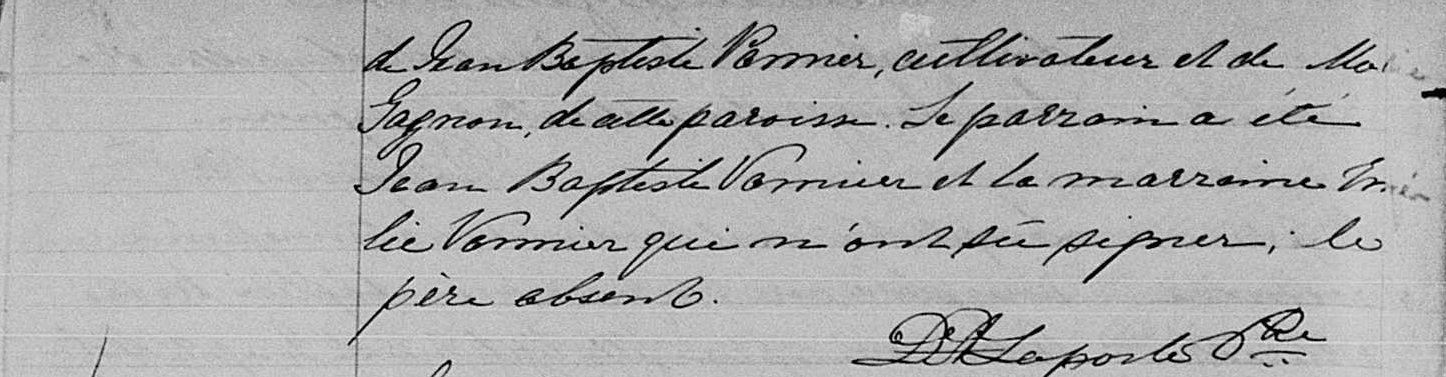 de Jean Baptiste Vannier, cultivateur et de Ma
Gagnon, de cette paroisse. Le parrain a été
Jean Baptiste Vannier et la marraine
lie Vannier qui n'ont su signer, le
père absent.
Laporte Ptre